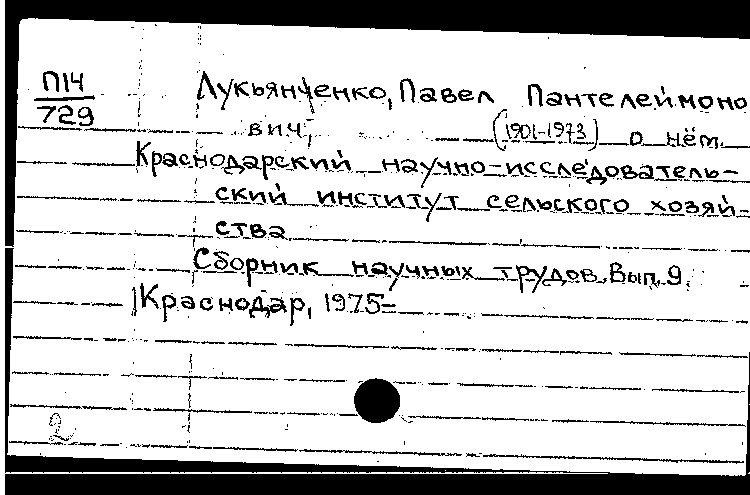 П14
729
Лукьянченко, Павел Пантелеймоно
вич, (1901-1973) о нём.
Краснодарский научно-исследователь-
ский институт сельского хозяй-
ства
Сборник научных трудов. Вып. 9.
Краснодар, 1975-
2